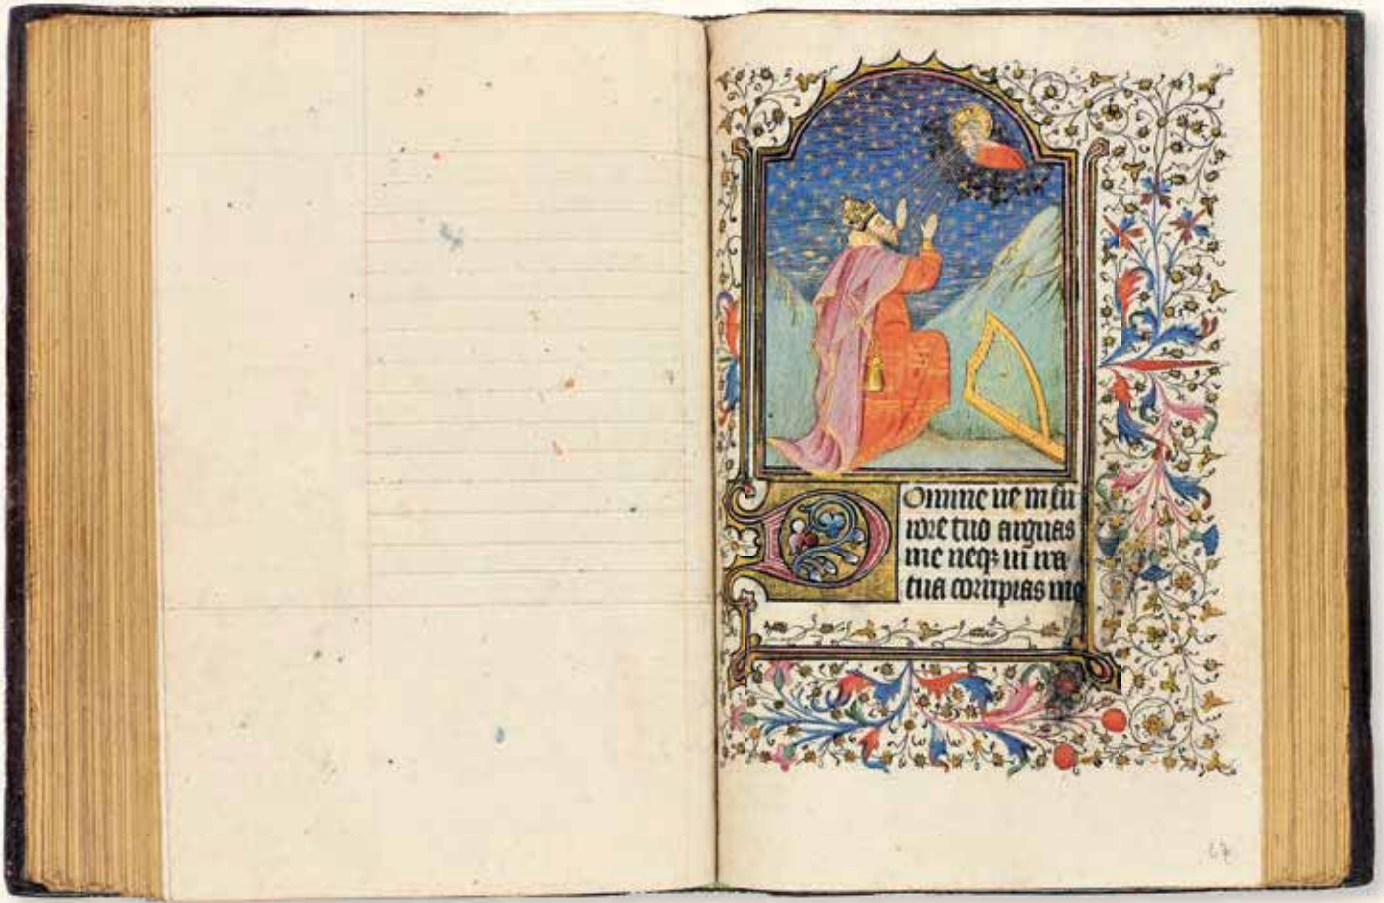 Domine ne in fu
rore tuo arguas
me neq; in ira
tua corripias me
67